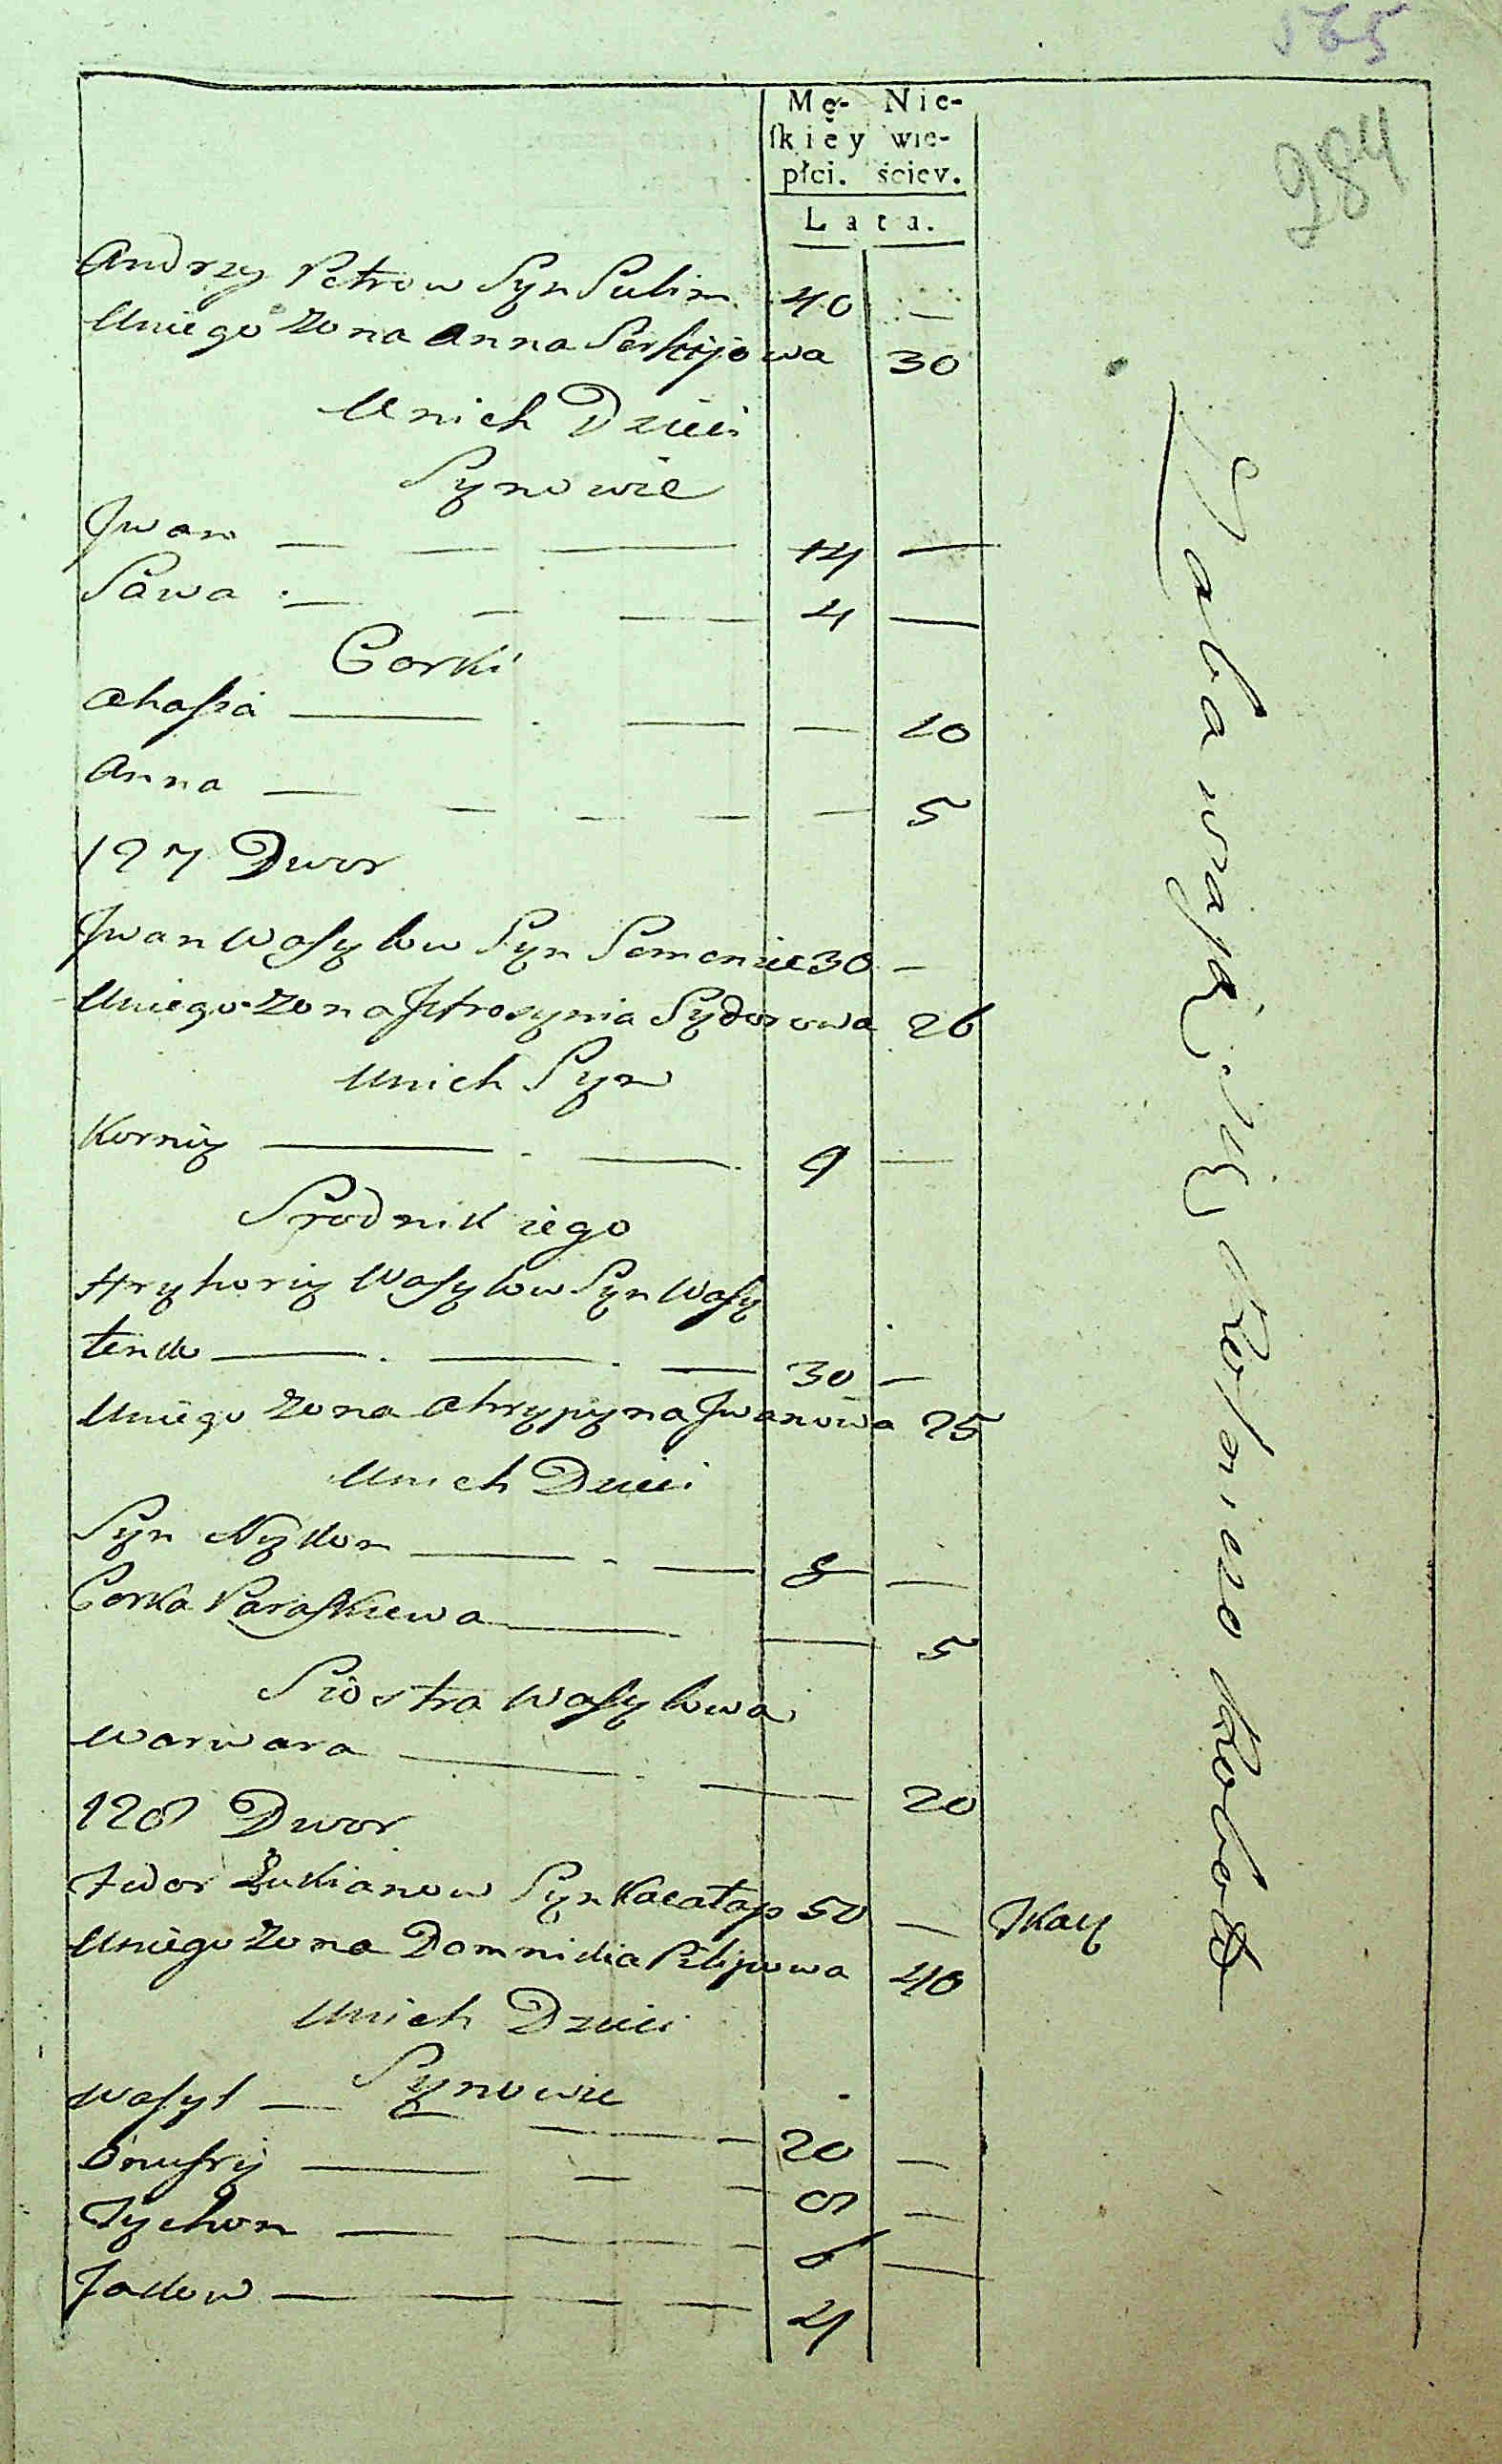 565
284
Mę- Nie-
ſkiey wie-
płci. ściey.
Lata.
Andrzy Petrow Syn Sulim 40 —
Uniego Zona Anna Serhijowa 30
Unich Dzieci
Synowie
Jwan — — — 14 —
Sawa — — — 4 —
Corki
Ahafia — — — 10
Anna — — — — — 5
127 Dwor
Jwan Wasylow Syn Semenie 30 —
Uniego Zona Jefrosynia Sydorowa 26
Unich Syn
Korniy — — 9 —
Srodnik iego
Hryhoriy Wasylow Syn Wasy
lenko — — — 30 —
Uniego Zona Ahrypyna Jwanowa 25
Unich Dzieci
Syn Nykon — — 8 —
Corka Paraskiewa — — 5
Siostra Wasylowa
Warwara — — 20
128 Dwor
Fedor Łukianow Syn Kacałap 50 — Tkacz
Uniego Zona Domnikia Pilipowa 40
Unich Dzieci
Synowie
Wasyl — — — 20 —
Onufriy — — — 9 —
Tychon — — — 6 —
Jakow — — — — 4